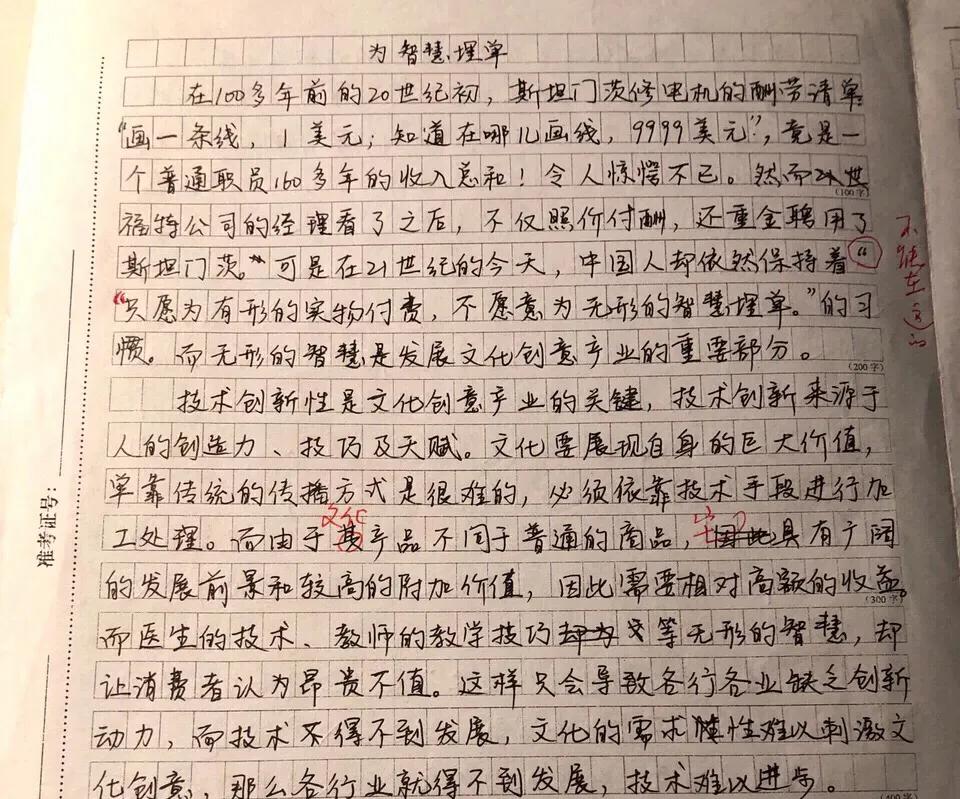 为智慧埋单
在100多年前的20世纪初，斯坦门茨修电机的酬劳清单
“画一条线，1美元；知道在哪儿画线，9999美元”，竟是一
个普通职员160多年的收入总和！令人惊愕不已。然而
(100字)
福特公司的经理看了之后，不仅照价付酬，还重金聘用了
斯坦门茨。可是在21世纪的今天，中国人却依然保持着“
“只愿为有形的实物付费，不愿意为无形的智慧埋单。”的习
不能在这
惯。而无形的智慧是发展文化创意产业的重要部分。
(200字)
技术创新性是文化创意产业的关键，技术创新来源于
人的创造力、技巧及天赋。文化要展现自身的巨大价值，
单靠传统的传播方式是很难的，必须依靠技术手段进行加
文化
工处理。而由于其产品不同于普通的商品，因此具有广阔
的发展前景和较高的附加价值，因此需要相对高额的收益。
(300字)
而医生的技术、教师的教学技巧却为等无形的智慧，却
让消费者认为昂贵不值。这样只会导致各行各业缺乏创新
动力，而技术不得不到发展，文化的需求性难以刺激文
化创意，那么各行业就得不到发展，技术难以进步。
(400字)
准考证号：